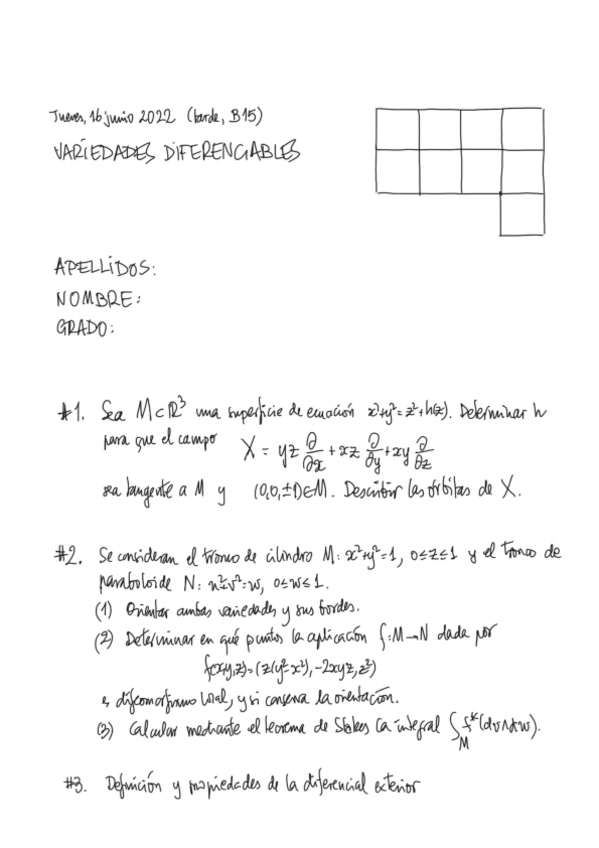 Jueves, 16 junio 2022 (tarde, B15)
VARIEDADES DIFERENCIABLES
APELLIDOS:
NOMBRE:
GRADO:
#1. Sea M⊂ℝ³ una superficie de ecuación x²+y²=z²+h(z). Determinar h
para que el campo X = yz ∂/∂x + xz ∂/∂y + xy ∂/∂z
sea tangente a M y (0,0,±1)∈M. Describir las órbitas de X.
#2. Se consideran el tronco de cilindro M: x²+y²=1, 0≤z≤1 y el tronco de
paraboloide N: u²+v²=w, 0≤w≤1.
(1) Orientar ambas variedades y sus bordes.
(2) Determinar en qué puntos la aplicación f: M→N dada por
f(x,y,z)=(z(y²-x²), -2xyz, z²)
es difeomorfismo local, y si conserva la orientación.
(3) Calcular mediante el teorema de Stokes la integral ∫_M f*(dv∧dw).
#3. Definición y propiedades de la diferencial exterior